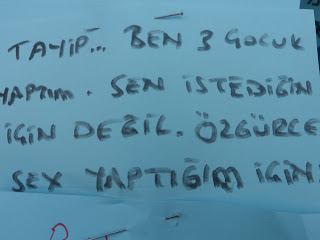 TAYİP... BEN 3 ÇOCUK
YAPTIM. SEN İSTEDİĞİN
İÇİN DEĞİL. ÖZGÜRCE
SEX YAPTIĞIM İÇİN!